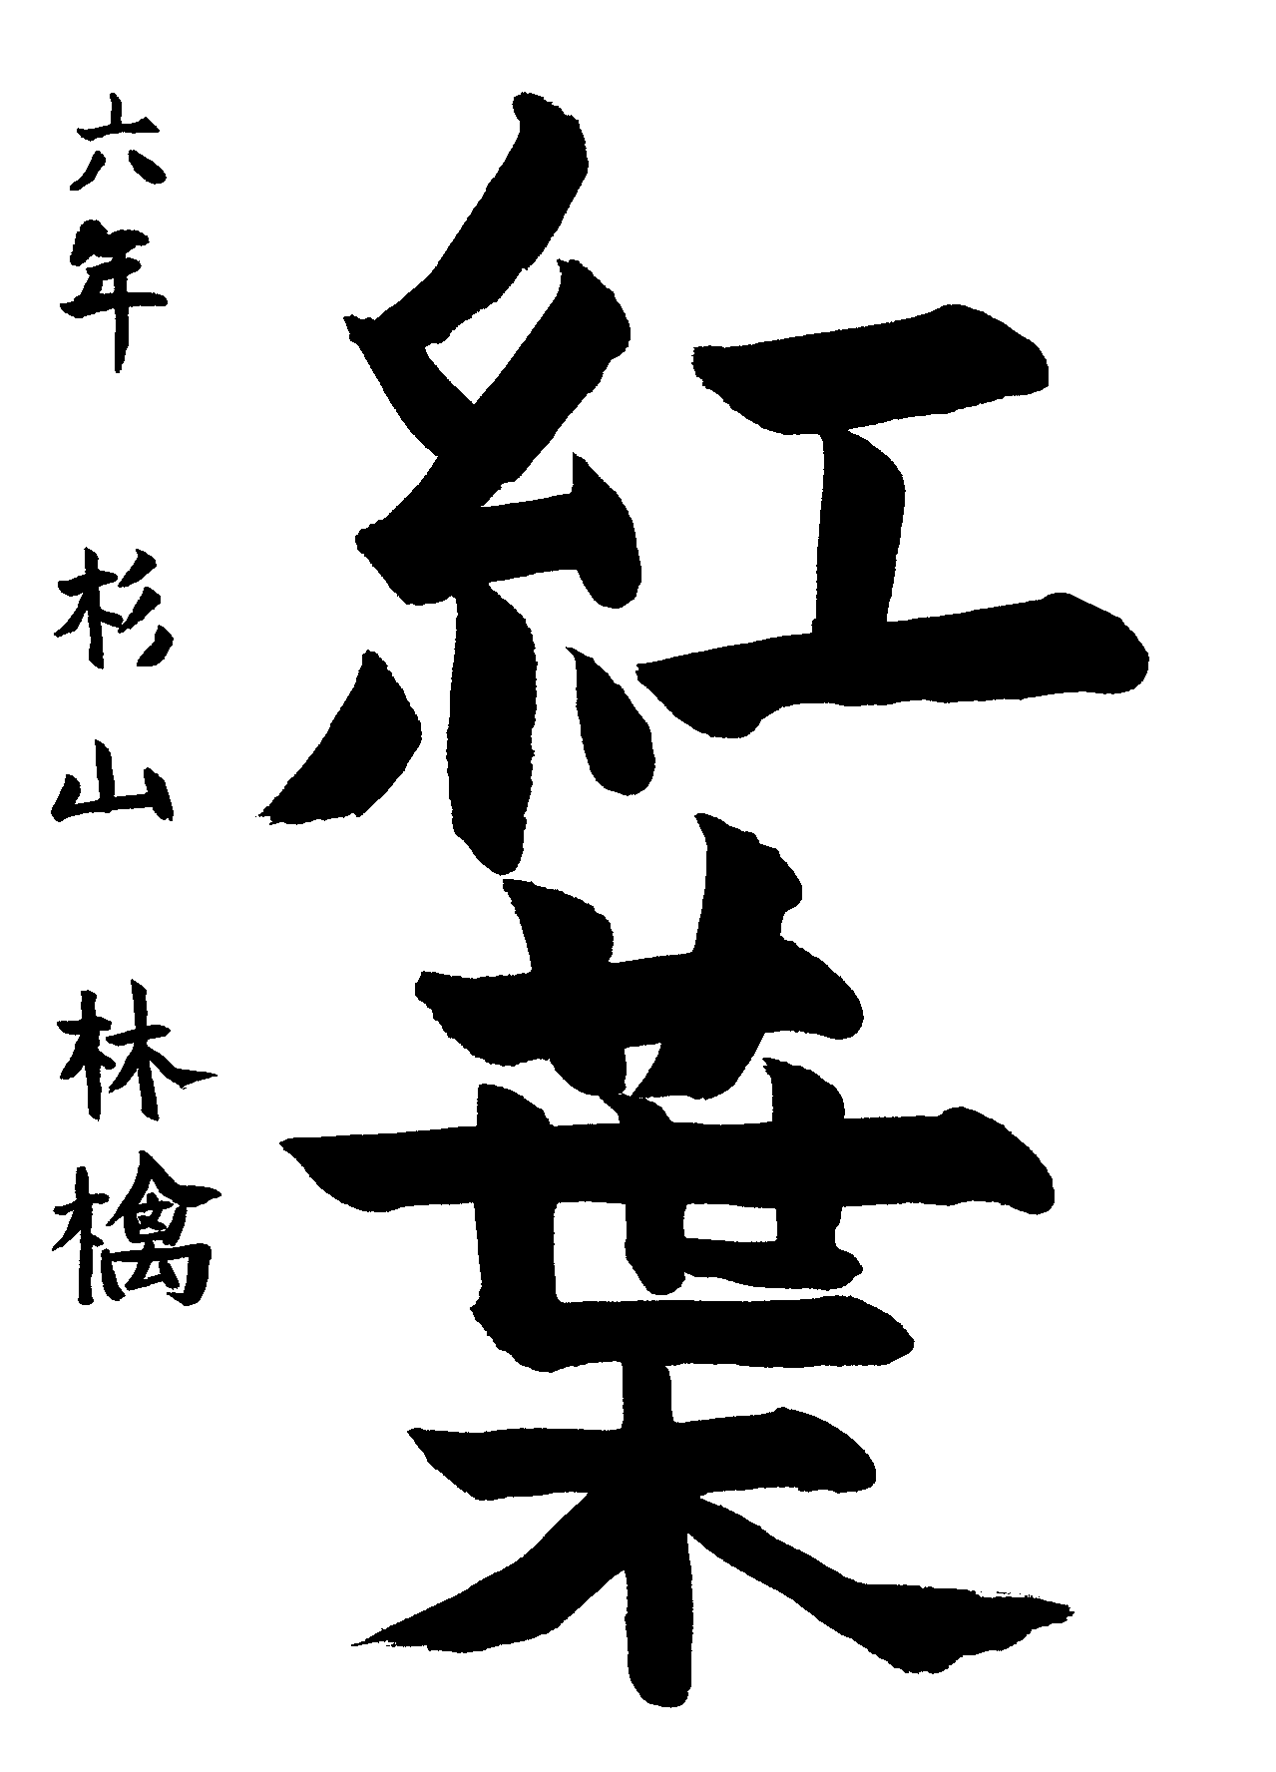 紅葉
六年 杉山 林檎